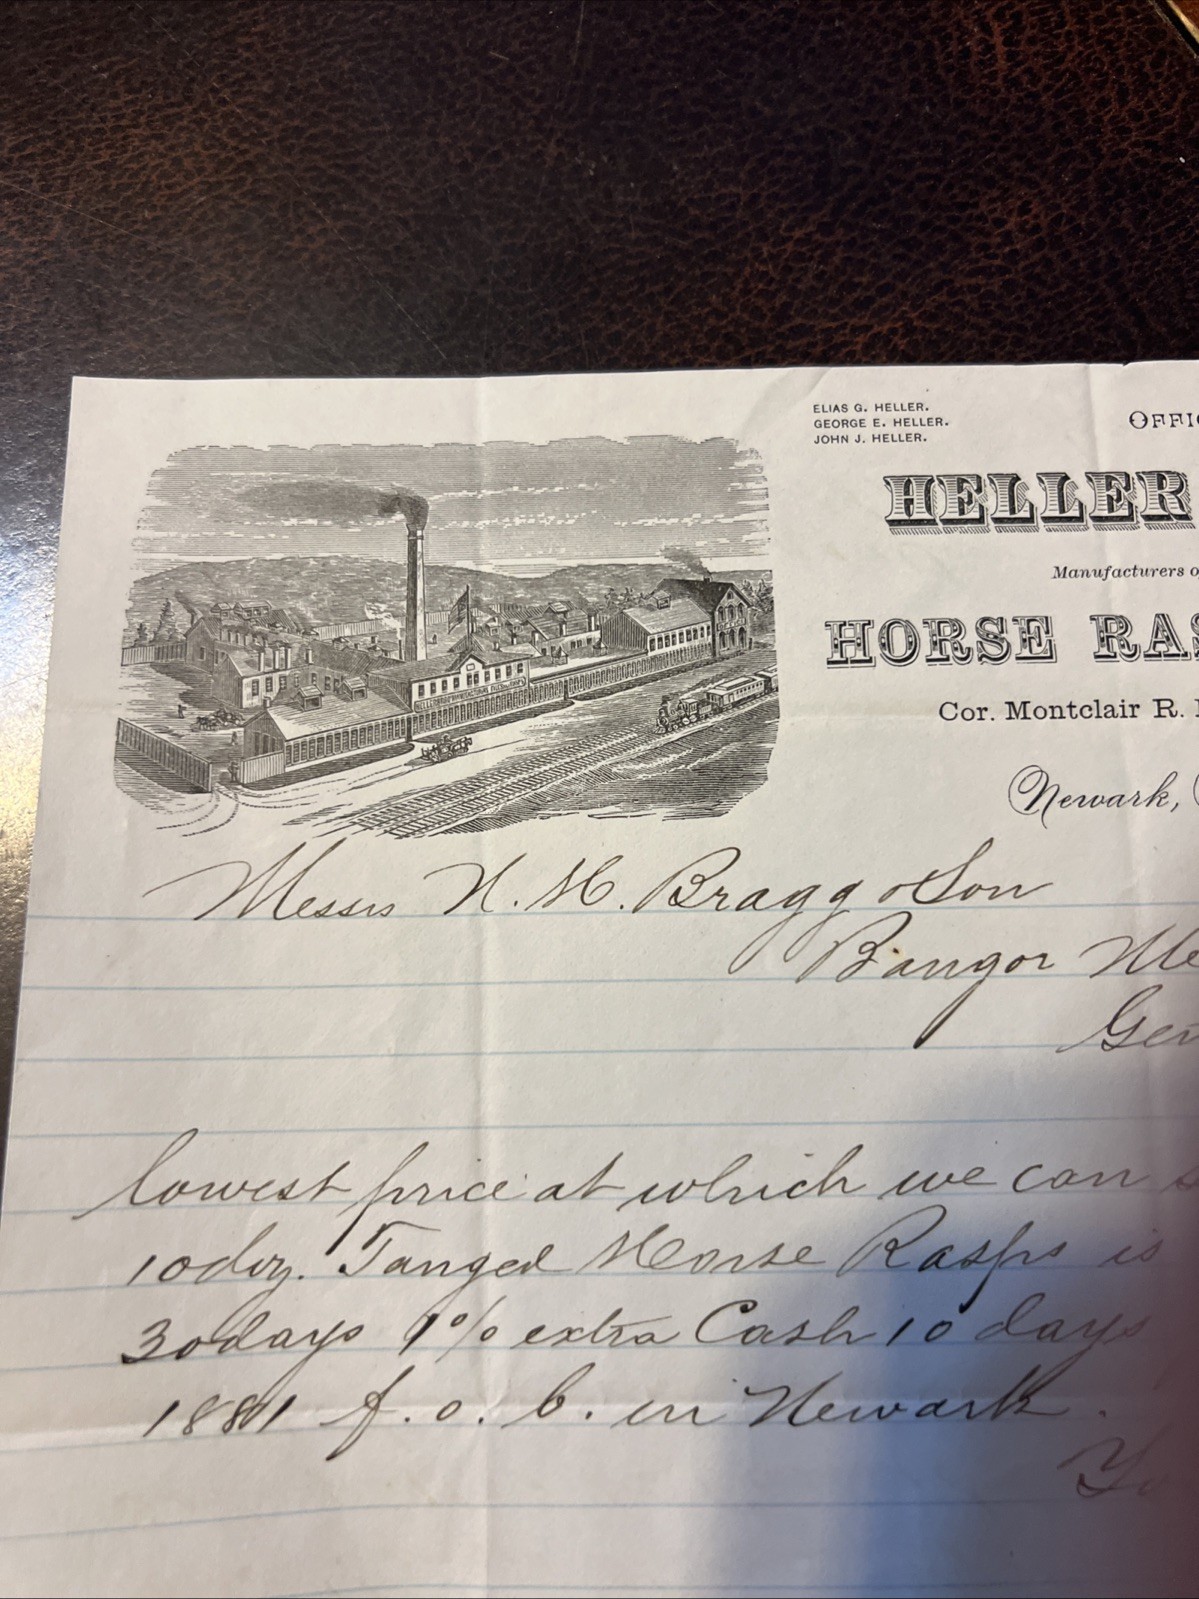 ELIAS G. HELLER.
GEORGE E. HELLER.
JOHN J. HELLER.
OFFIC
HELLER
Manufacturers o
HORSE RAS
Cor. Montclair R.
Newark,
Messrs N. H. Bragg & Son
Bangor Me
Gen
lowest price at which we can s
10 doz. Tanged Horse Rasps is
30 days 1% extra Cash 10 days
1881 f. o. b. in Newark.
Yo